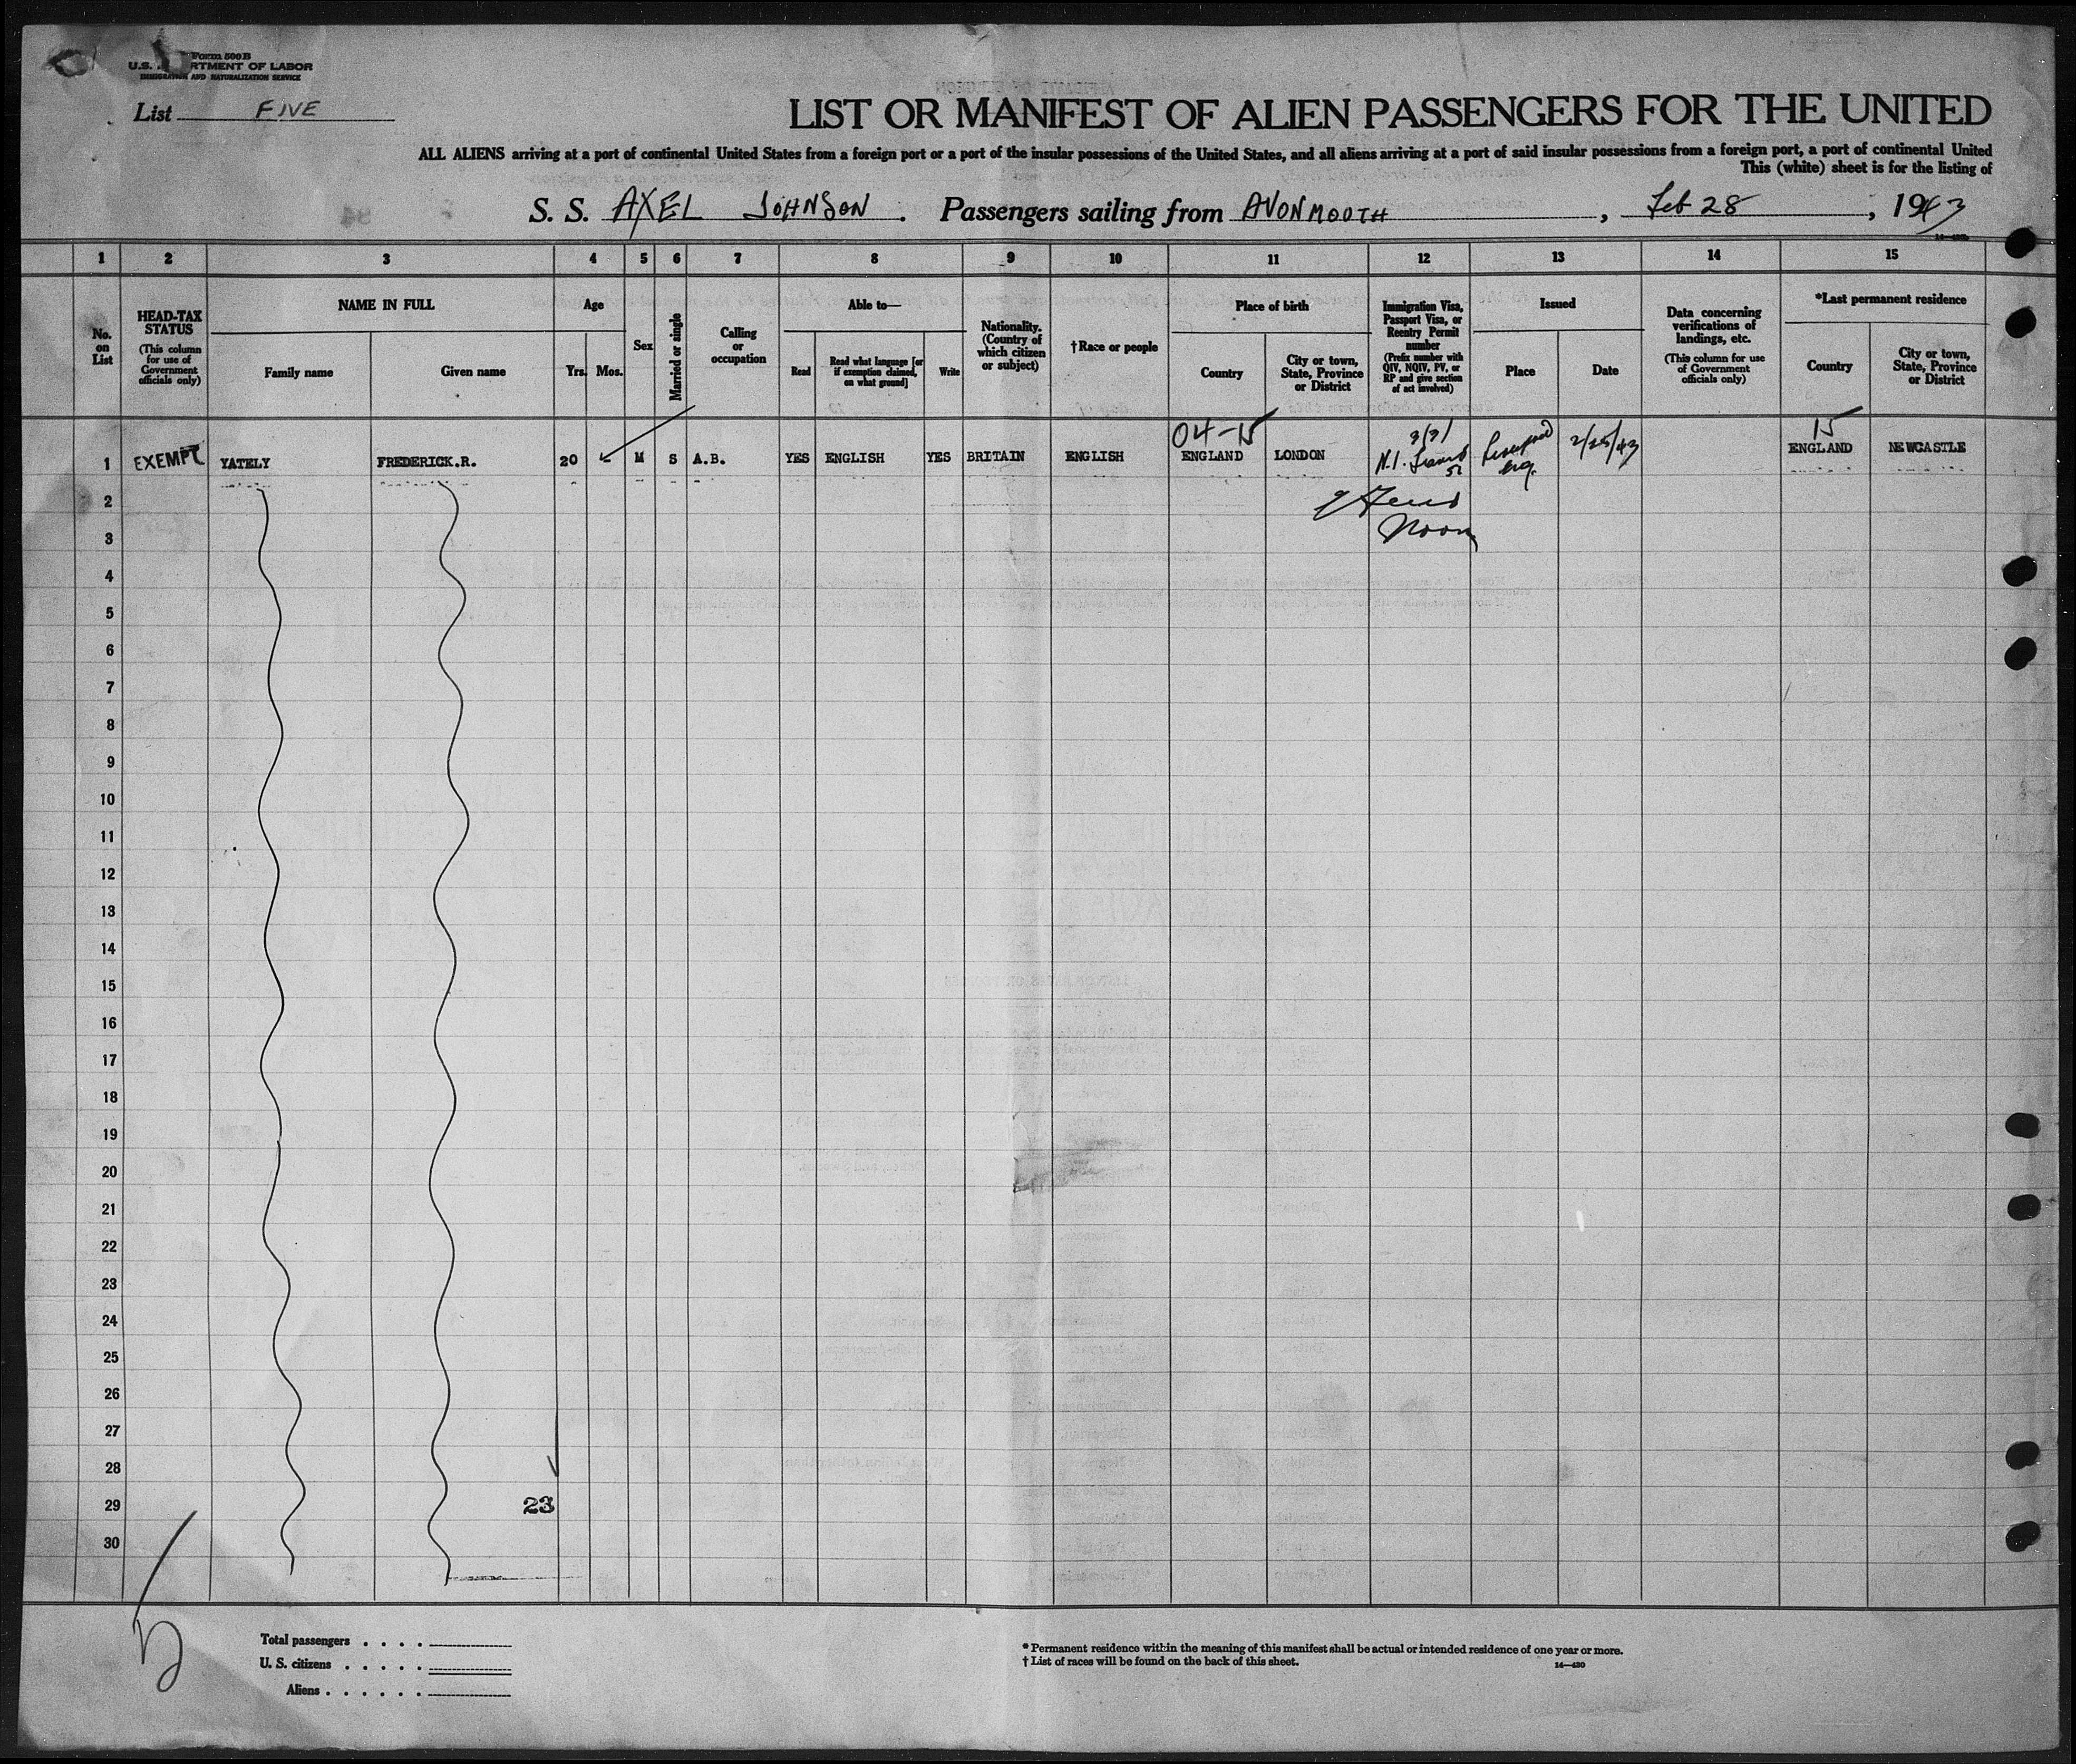 Form 500B
U.S. DEPARTMENT OF LABOR
IMMIGRATION AND NATURALIZATION SERVICE
List FIVE
LIST OR MANIFEST OF ALIEN PASSENGERS FOR THE UNITED
ALL ALIENS arriving at a port of continental United States from a foreign port or a port of the insular possessions of the United States, and all aliens arriving at a port of said insular possessions from a foreign port, a port of continental United
This (white) sheet is for the listing of
S. S. AXEL JOHNSON . Passengers sailing from AVONMOOTH , Feb 28 , 1943
1 2 3 4 5 6 7 8 9 10 11 12 13 14 15
No. on List
HEAD-TAX STATUS
(This column for use of Government officials only)
NAME IN FULL
Family name
Given name
Age
Yrs.
Mos.
Sex
Married or single
Calling or occupation
Able to—
Read
Read what language [or if exemption claimed, on what ground]
Write
Nationality. (Country of which citizen or subject)
†Race or people
Place of birth
Country
City or town, State, Province or District
Immigration Visa, Passport Visa, or Reentry Permit number
(Prefix number with QIV, NQIV, PV, or RP and give section of act involved)
Issued
Place
Date
Data concerning verifications of landings, etc.
(This column for use of Government officials only)
*Last permanent residence
Country
City or town, State, Province or District
04-15
15
1 EXEMPT YATELY FREDERICK.R. 20 - M S A.B. YES ENGLISH YES BRITAIN ENGLISH ENGLAND LONDON 2/25/43 ENGLAND NEWCASTLE
2
3
4
5
6
7
8
9
10
11
12
13
14
15
16
17
18
19
20
21
22
23
24
25
26
27
28
29 23
30
Total passengers . . . .
U. S. citizens . . . . .
Aliens . . . . . .
* Permanent residence within the meaning of this manifest shall be actual or intended residence of one year or more.
† List of races will be found on the back of this sheet.
14—430